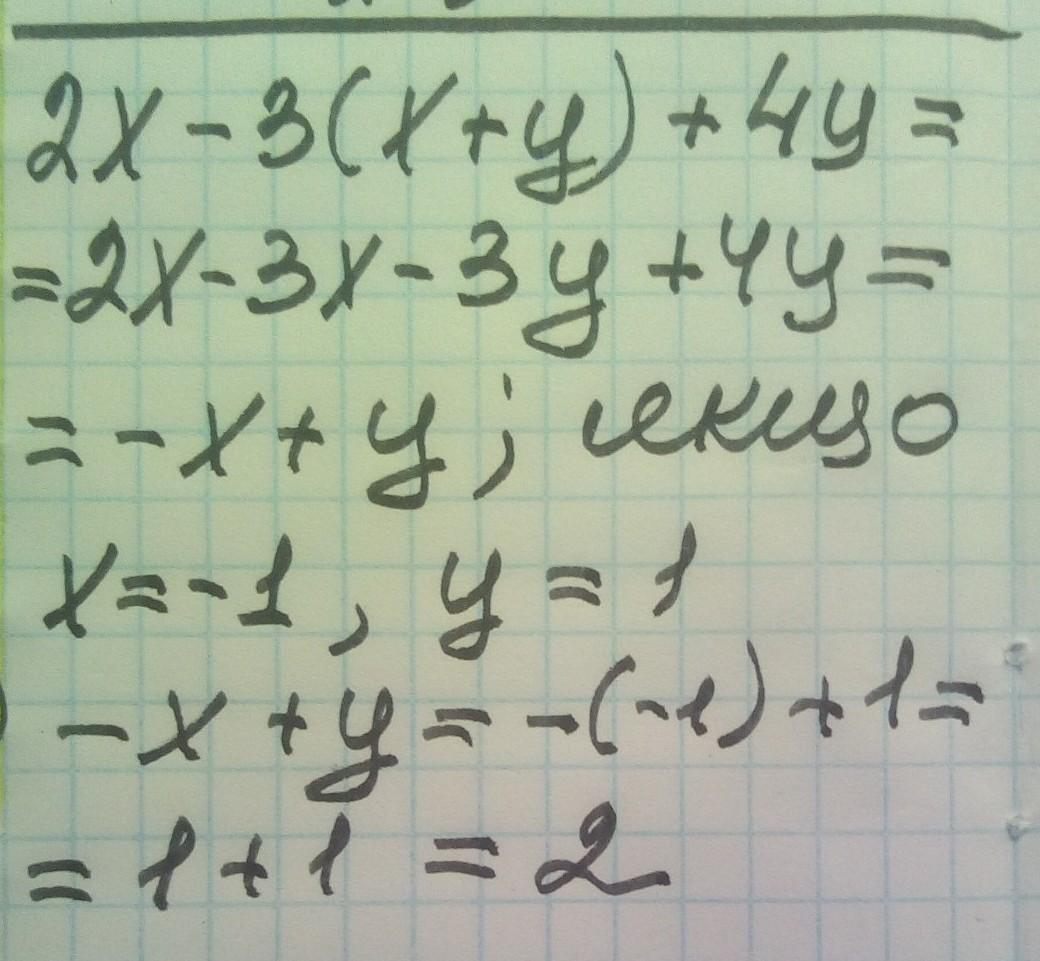 2x - 3(x + y) + 4y =
= 2x - 3x - 3y + 4y =
= - x + y ; якщо
x = - 1 , y = 1
- x + y = - (-1) + 1 =
= 1 + 1 = 2